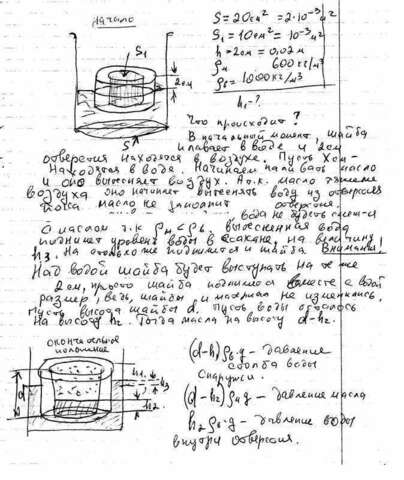 Начало
S = 20см² = 2·10⁻³м²
S₁ = 10см² = 10⁻³м²
h = 2см = 0,02м
ρм 600кг/м³
ρв = 1000кг/м³
h₁-?
S₁
2см
S
Что происходит?
В начальный момент, шайба
плавает в воде и 2см
отверстия находятся в воздухе. Пусть
Находятся в воде. Начинаем наливать масло
и оно вытесняет воздух. Но т.к. масло
воздуха оно начинает вытеснять воду из отверстия
пока масло не заполнит отверстия.
вода не будет
с маслом т.к ρм<ρв. вытесненная вода
поднимет уровень воды в стакане, на величину
h₃. На столько же поднимется и шайба Внимание!
Над водой шайба будет выступать на те же
2см, просто шайба поднимется вместе с водой
размер, ведь, шайбы и материал не изменились.
Пусть высота шайбы d. Пусть воды осталось
На высоту h₂. Тогда масла на высоту d-h₂.
окончательное
положение
d
h₁
h₃
h₂
(d-h)ρв·g - давление
столба воды
снаружи.
(d-h₂)ρм g - давление масла
h₂ρв·g - давление воды
внутри отверстия.